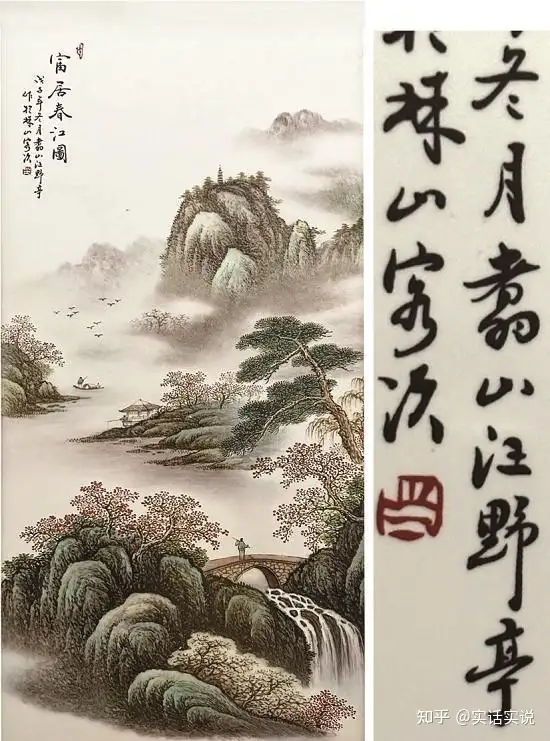 富居春江圖
戊子年冬月翥山汪野亭
作於珠山客次
冬月翥山汪野亭
珠山客次
知乎 @实话实说